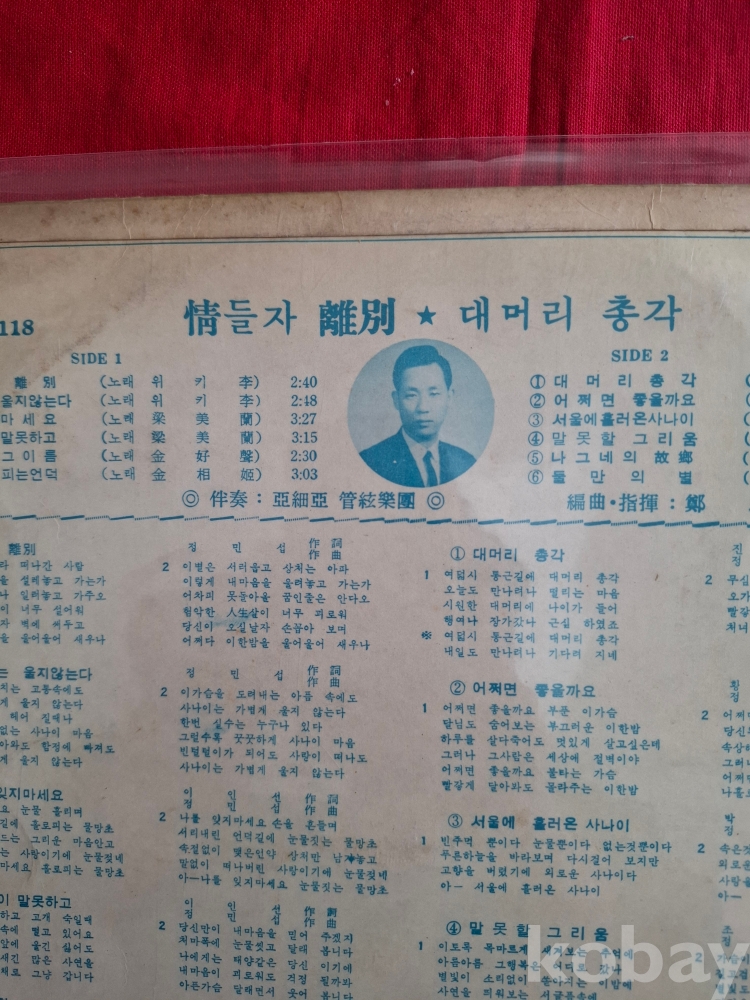 118
情들자 離別 ★ 대머리 총각
SIDE 1
離別 (노래 위키李) 2:40
울지않는다 (노래 위키李) 2:48
마세요 (노래 梁美蘭) 3:27
말못하고 (노래 梁美蘭) 3:15
그이름 (노래 金好聲) 2:30
피는언덕 (노래 金相姬) 3:03
SIDE 2
① 대머리 총각
② 어쩌면 좋을까요
③ 서울에흘러온사나이
④ 말못할 그리움
⑤ 나그네의 故鄕
⑥ 둘만의 별
◎ 伴奏: 亞細亞 管絃樂團 ◎
編曲・指揮: 鄭
離別
라 떠나간 사람
을 설레놓고 가는가
나 일러놓고 가주오
이 너무 설어워
자 벽에 써두고
을 울어울어 새우나
정민섭 作詞 作曲
2 이별은 서러웁고 상처는 아파
이렇게 내마음을 울려놓고 가는가
어차피 못돌아올 꿈인줄은 안다오
험악한 人生살이 너무 괴로워
당신이 오실날자 손꼽아 보며
어쩌다 이한밤을 울어울어 새우나
는 울지않는다
치는 고통속에도
게 울지 않는다
헤어 질때나
없는 사나이 마음
아와도 함정에 빠져도
게 울지 않는다
정민섭 作詞 作曲
2 이가슴을 도려내는 아픔 속에도
사나이는 가볍게 울지 않는다
한번 실수는 누구나 있다
그럴수록 꿋꿋하게 사나이 마음
빈털털이가 되어도 사랑이 떠나도
사나이는 가볍게 울지 않는다
잊지마세요
요 눈물 흘리며
길에 홀로피는 물망초
드는 그리운 마음안고
는 사랑이기에 눈물젖네
마세요 홀로피는 물망초
이인선 作詞
정민섭 作曲
2 나를 잊지마세요 손을 흔들며
서리내린 언덕길에 눈물짓는 물망초
속절없이 맺은언약 상처만 남겨놓고
말없이 떠나버린 사랑이기에 눈물젖네
아ー나를 잊지마세요 눈물짓는 물망초
이 말못하고
하고 고개 숙일때
속에 떨고 있어요
앞에 울긴 싫어도
새긴 많은 사연을
채로 그냥 갑니다
이인선 作詞
정민섭 作曲
2 당신만이 내마음을 믿어 주겠지
처마폭에 눈물씻고 달래 봅니다
나에게는 태양같은 당신 이기에
내마음이 괴로워도 걱정 될까봐
아픈가슴 달래면서 웃어 봅니다
① 대머리 총각
1 여덟시 통근길에 대머리 총각
오늘도 만나려나 떨리는 마음
시원한 대머리에 나이가 들어
행여나 장가갔나 근심 하였죠
※ 여덟시 통근길에 대머리 총각
내일도 만나려나 기다려 지네
② 어쩌면 좋을까요
1 어쩌면 좋을까요 부푼 이가슴
달님도 숨어보는 부끄러운 이한밤
하루를 살다죽어도 멋있게 살고싶은데
그러나 그사람은 세상에 절벽이야
어쩌면 좋을까요 불타는 가슴
빨갛게 달아와도 몰라주는 이한밤
③ 서울에 흘러온 사나이
1 빈주먹 뿐이다 눈물뿐이다 없는것뿐이다
푸른하늘을 바라보며 다시걸어 보지만
고향을 버렸기에 외로운 사나이다
아ー 서울에 흘러온 사나이
④ 말못할 그리움
1 이도록 목마르게
kobay